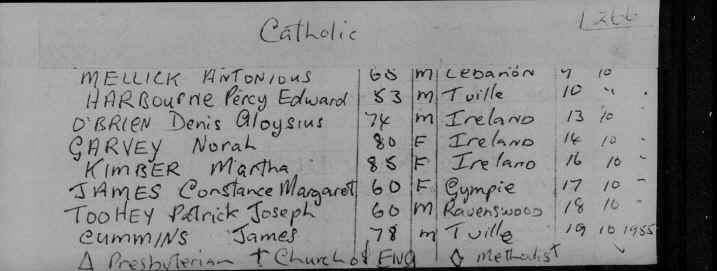 L266
Catholic
MELLICK ANTONIOUS 65 M Lebanon 9 10
HARBOURNE Percy Edward 53 m Tville 10 " .
O'BRIEN Denis Aloysius 74 m Ireland 13 10
GARVEY Norah 80 F Ireland 14 10 "
KIMBER Martha 85 F Ireland 16 10 "
JAMES Constance Margaret 60 F Gympie 17 10 "
TOOHEY Patrick Joseph 60 M Ravenswood 18 10 "
CUMMINS James 78 m Tville 19 10 1955
Δ Presbyterian † Church of ENG ◊ Methodist